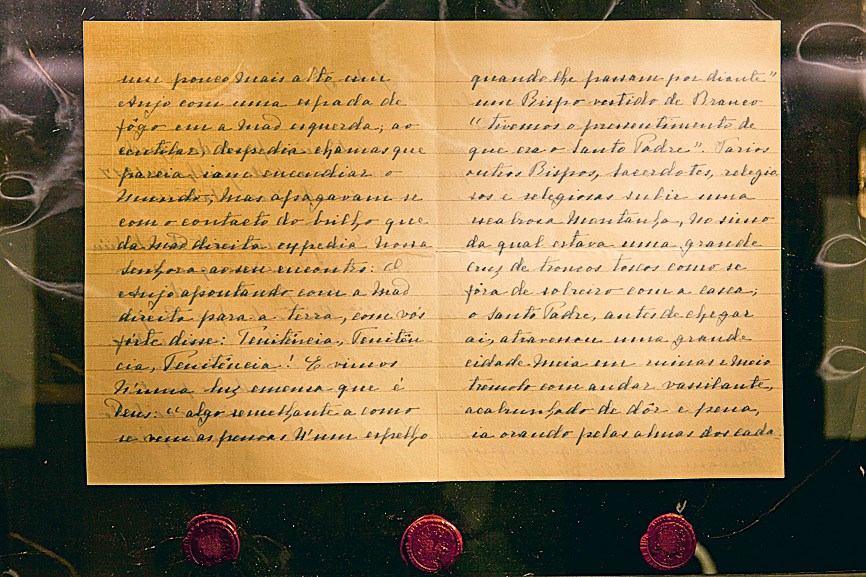 um pouco mais alto um
Anjo com uma espada de
fôgo em a mão esquerda; ao
centilar, despedia chamas que
parecia iam encendiar o
mundo; mas apagavam-se
com o contacto do brilho que
da mão direita expedia Nossa
Senhora ao seu encontro: O
Anjo apontando com a mão
direita para a terra, com vós
forte disse: Penitência, Penitên-
cia, Penitência! E vimos
n'uma luz emensa que é
Deus: "algo semelhante a como
se vem as pessoas n'um espelho
quando lhe passam por diante"
um Bispo vestido de Branco
"tivemos o pressentimento de
que era o Santo Padre". Varios
outros Bispos, Sacerdotes, religio
sos e religiosas subir uma
escabrosa montanha, no simo
da qual estava uma grande
cruz de troncos toscos como se
fôra de sobreiro com a casca;
o Santo Padre, antes de chegar
aí, atravessou uma grande
cidade meia em ruinas e meio
tremulo com andar vassilante,
acabrunhado de dôr e pena,
ia orando pelas almas dos cada